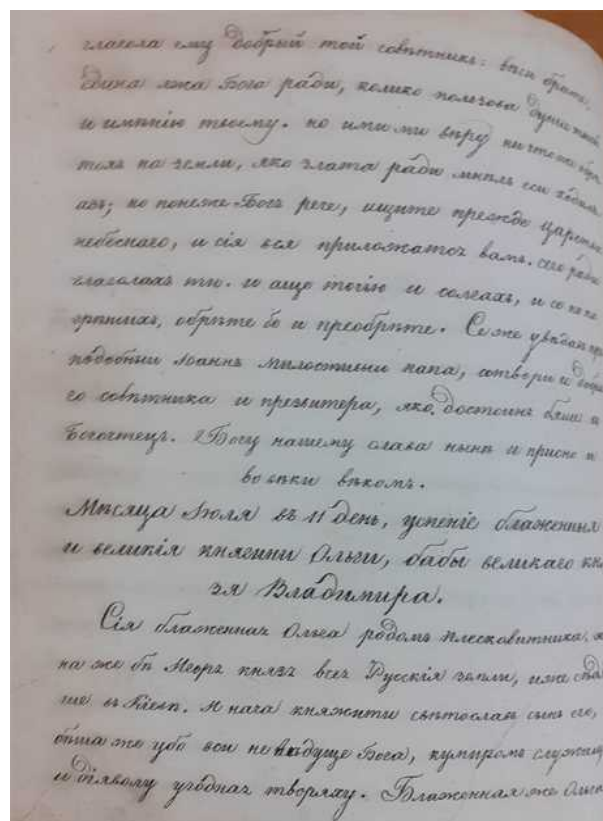 глагола ему добрый той совѣтникъ: виси братъ,
едина лжа Бога ради, колико пользова души твоей
и имѣнію твоему. но ими ми вѣру ничтоже
на земли, яко злата ради мнѣлъ еси
азъ; но понеже Богъ рече, ищите прежде царствія
небеснаго, и сія вся приложатся вамъ. сего ради
глаголахъ ти. и аще тогію и
обрѣте бо и преобрѣте. Се же увѣдавъ
подобный Іоаннъ милостивый папа, сотвори и
го совѣтника и презвитера, яко достоинъ бяше и
Богочтецъ. Богу нашему слава нынѣ и присно и
во вѣки вѣкомъ.
Мѣсяца Іюля въ 11 день, успеніе блаженныя
и великія княгини Ольги, бабы великаго кня
зя Владимира.
Сія блаженная Ольга родомъ плесковитянка.
на же бѣ Игорѧ князѧ всея Русскія земли, иже
ше въ Кіевѣ. И нача княжити свѣтославъ сынъ его,
бѣша же убо вси невѣдуще Бога, кумиромъ служаще
и діяволу угодная творяху. Блаженная же Ольга